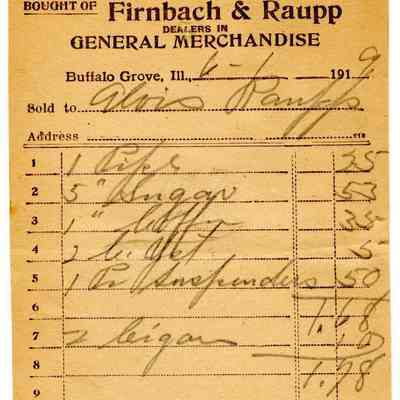 BOUGHT OF Firnbach & Raupp
DEALERS IN
GENERAL MERCHANDISE
Buffalo Grove, Ill., 6-1- 1919
Sold to Alois Raupp
Address
1 1 Pipe 25
2 5 " Sugar 53
3 1 " Coffee 35
4 2 5
5 1 Pr Suspenders 50
6 1.68
7 2 Cigars 10
8 1.78
9